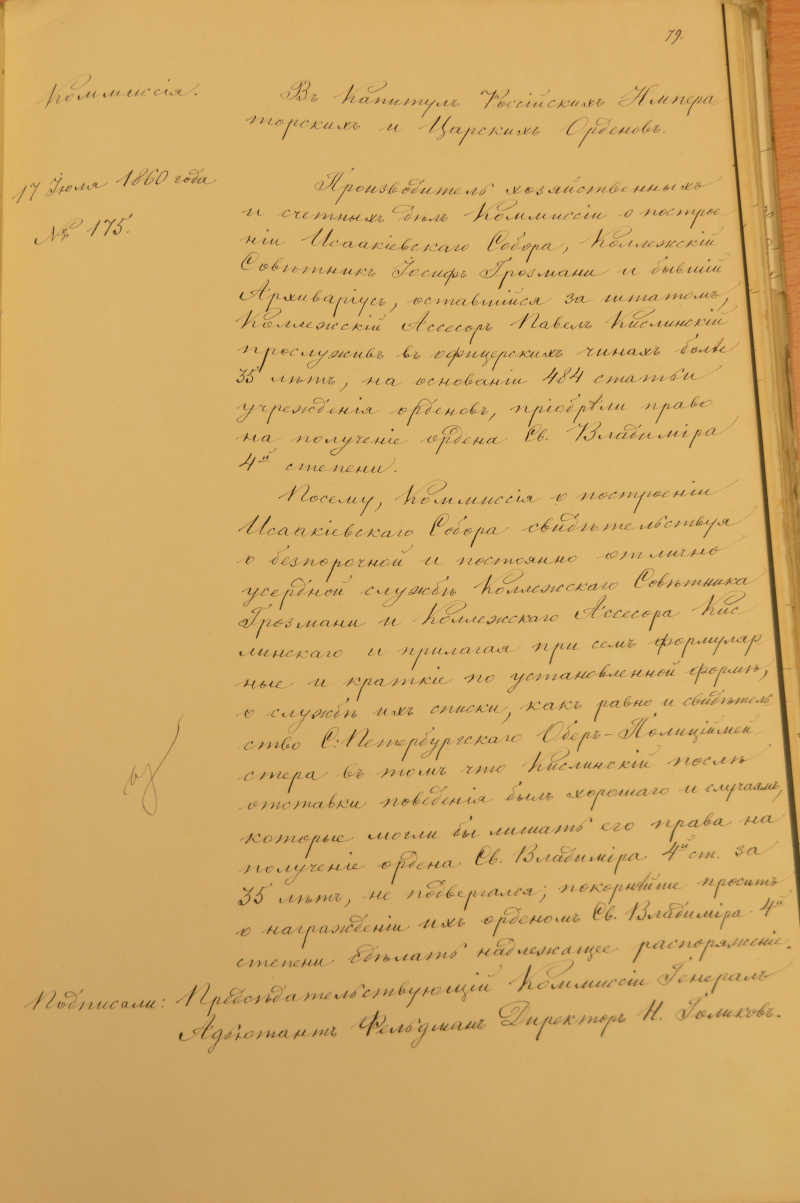 79.
Коммиссія.
Въ Капитулъ Россійскихъ Импера
торскихъ и Царскихъ Орденовъ.
17 Іюля 1860 года
№ 175.
Производитель хозяйственныхъ
и счетныхъ дѣлъ Коммиссіи о построе
ніи Исаакіевскаго Собора, Коллежскій
Совѣтникъ Іосифъ Грозмани и бывшій
Архиваріусъ, оставшійся за штатомъ,
Коллежскій Ассесоръ Павелъ Кислинскій
прослуживъ въ офицерскихъ чинахъ болѣе
35 лѣтъ, на основаніи 484 статьи
учрежденія орденовъ, пріобрѣли право
на полученіе ордена Св. Владиміра
4й степени.
Посему, Коммиссія о построеніи
Исаакіевскаго Собора свидѣтельствуя
о безпорочной и постоянно отлично
усердной службѣ Коллежскаго Совѣтника
Грозмани и Коллежскаго Ассесора Кис
линскаго и прилагая при семъ формуляр
ные и краткіе по установленной формѣ,
о службѣ ихъ списки, какъ равно и свидѣтель
ство С.Петербургскаго Оберъ-Полиціймей
стера въ томъ что Кислинскій послѣ
отставки поведенія былъ хорошаго и случаямъ,
которые могли бы лишать его права на
полученіе ордена Св. Владиміра 4й ст. за
35 лѣтъ, не подвергался; покорнѣйше проситъ
о награжденіи ихъ орденомъ Св. Владиміра 4й
степени сдѣлать надлежащее распоряженіе.
Подписали: Предсѣдательствующій Коммиссіи Генералъ
Адъютантъ Фельдманъ Директоръ Н. Голиковъ.